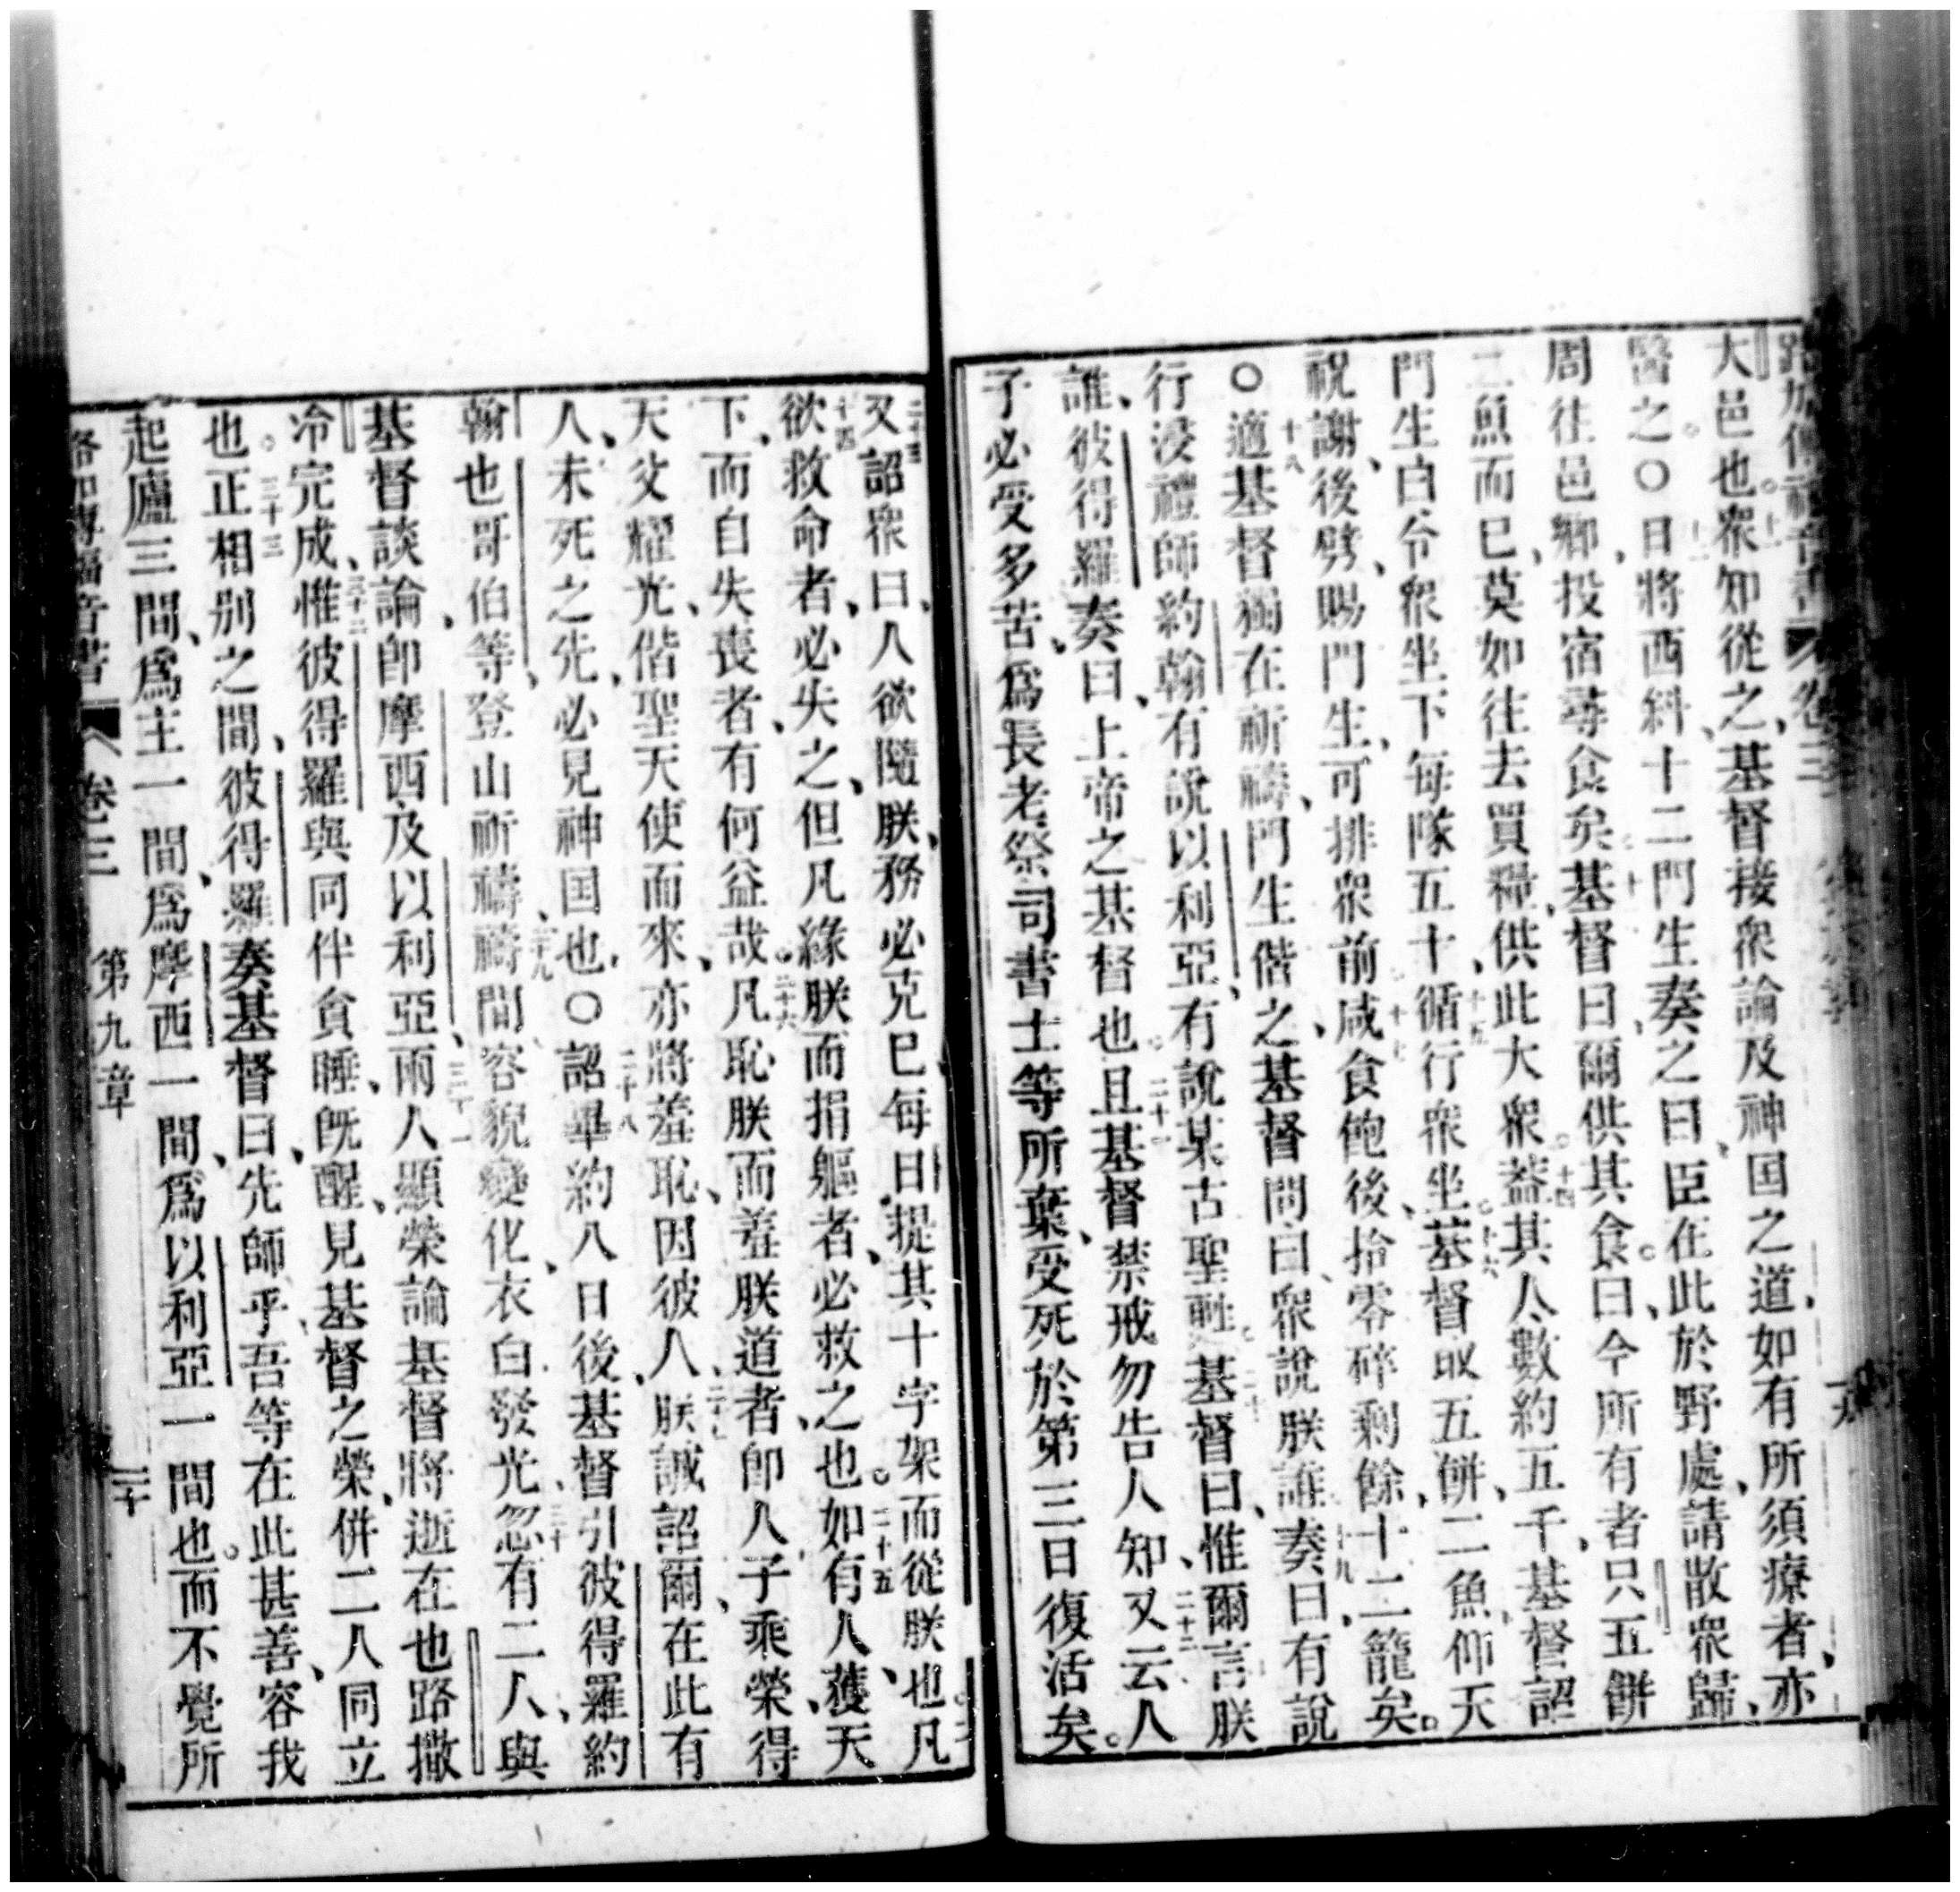 路加傳福音書 卷三
大邑也。十一衆知從之、基督接衆論及神国之道、如有所須療者、亦
醫之。〇十二日將西斜、十二門生奏之曰、臣在此於野處、請散衆歸、
周往邑鄉、投宿尋食矣。十三基督曰、爾供其食。曰、今所有者只五餅
二魚而已、莫如往去買糧、供此大衆。十四蓋其人數約五千、基督詔
門生曰、令衆坐下每隊五十、十五循行衆坐。十六基督取五餅、二魚、仰天
祝謝、後劈、賜門生、可排衆前、十七咸食飽後、拾零碎剩餘、十二籠矣。
〇十八適基督獨在祈禱、門生偕之、基督問曰、衆說朕誰、十九奏曰、有說
行浸禮師約翰、有說以利亞、有說某古聖甦。二十基督曰、惟爾言朕
誰、彼得羅奏曰、上帝之基督也。二十一且基督禁戒勿告人知、二十二又云、人
子必受多苦、爲長老祭司書士等所棄、受死於第三日復活矣。
二十三又詔衆曰、人欲隨朕、務必克已每日、提其十字架而從朕也。凡
二十四欲救命者、必失之、但凡緣朕而捐軀者、必救之也。二十五如有人、獲天
下、而自失喪者、有何益哉。二十六凡恥朕而羞朕道者、即人子乘榮、得
天父耀光、偕聖天使而來、亦將羞恥、因彼人、二十七朕誠詔爾、在此有
人、未死之先、必見神国也。〇二十八詔畢、約八日後、基督引彼得羅約
翰也哥伯等、登山祈禱、二十九禱間、容貌變化、衣白發光、三十忽有二人、與
基督談論、即摩西及以利亞、三十一兩人顯榮論基督將逝在也路撒
冷完成、三十二惟彼得羅與同伴貪睡、旣醒、見基督之榮、併二人同立
也。三十三正相别之間、彼得羅奏基督曰、先師乎、吾等在此甚善、容我
起廬三間、爲主一間、爲摩西一間、爲以利亞一間也。而不覺所
路加傳福音書 卷三 第九章 二十